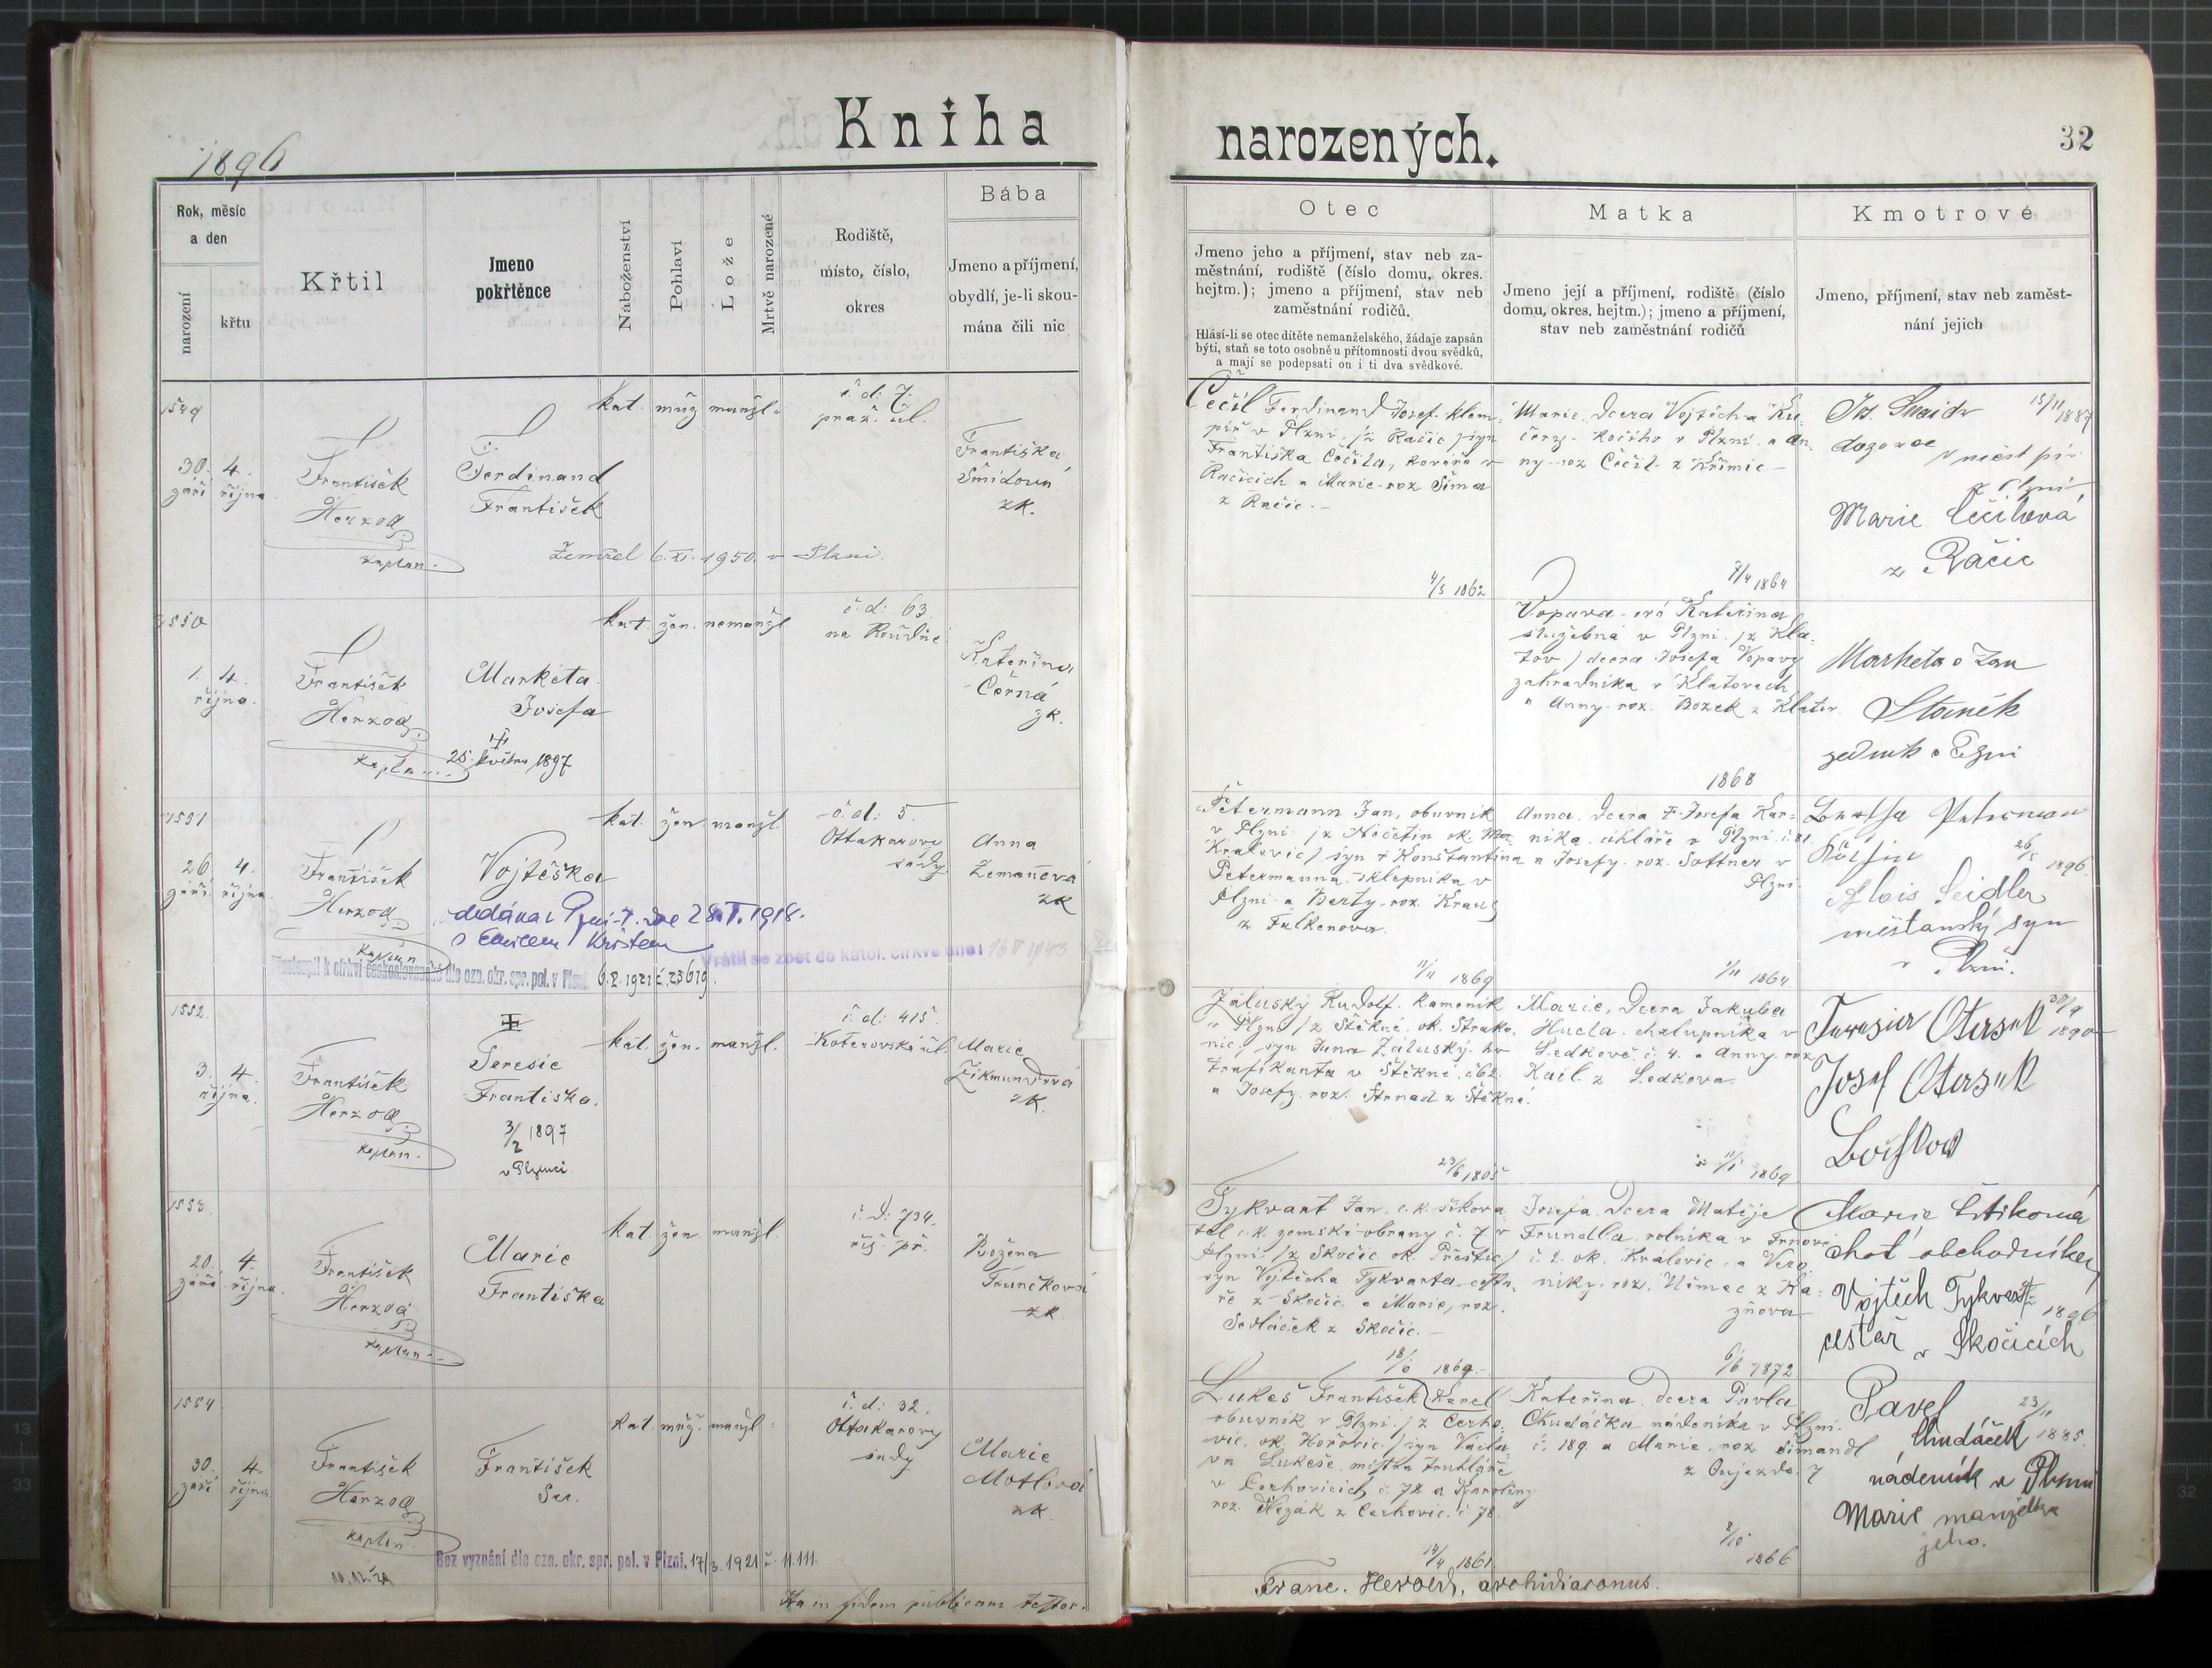 Kniha
narozených.
32
1896
Rok, měsíc
a den
narození
křtu
Křtil
Jmeno
pokřtěnce
Náboženství
Pohlaví
Lože
Mrtvě narozené
Rodiště,
místo, číslo,
okres
Bába
Jmeno a příjmení,
obydlí, je-li skou-
mána čili nic
Otec
Jmeno jeho a příjmení, stav neb za-
městnání, rodiště (číslo domu, okres.
hejtm.); jmeno a příjmení, stav neb
zaměstnání rodičů.
Hlásí-li se otec dítěte nemanželského, žádaje zapsán
býti, staň se toto osobně u přítomnosti dvou svědků,
a mají se podepsati on i ti dva svědkové.
Matka
Jmeno její a příjmení, rodiště (číslo
domu, okres, hejtm.); jmeno a příjmení,
stav neb zaměstnání rodičů
Kmotrové
Jmeno, příjmení, stav neb zaměst-
nání jejich
1549
30. 4.
září října
František
Herzog
kaplan.
Ferdinand
František
kat. muž. manžl.
č. d: 7.
praž. ul.
Františka
Šmídová
zk.
Zemřel 6. XI. 1950 v Plzni.
Čečil Ferdinand Josef klem-
píř v Plzni /z Račic/ syn
Františka Čečila, kováře v
Račicích a Marie roz. Šíma
z Račic.
4/5 1862
Marie dcera Vojtěcha Ku-
čery kočího v Plzni a An-
ny roz Čečil z Křimic
7/4 1864
15/11 1887
dozorce v měšť. piv.
v Plzni
Marie Čečilová
z Račic
1550
1. 4.
října.
František
Herzog
kaplan.
Marketa
Josefa
25. května 1897
kat. žen. nemanžl.
č. d: 63
na Roudné
Kateřina
Černá
zk.
Vopava-ová Kateřina
služebná v Plzni /z Kla-
tov/ dcera Josefa Vopavy
zahradníka v Klatovech
a Anny roz. Bozek z Klatov.
1868
Marketa a Jan
Staněk
1551
26. 4.
září října.
František
Herzog
kaplan
Vojtěška
kat. žen. manžl.
č. d: 5
Ottakarovy
sady
Anna
Zemanová
zk
oddána v Plzni dne 28. 1918.
s Emilem Krištem
Přestoupil k církvi československé dle ozn. okr. spr. pol. v Plzni 6. 1921 č. 23619.
Vrátil se zpět do katol. církve dne: 16 V 1943
Petermann Jan, obuvník
v Plzni /z Hočetin ok. Ma-
Kralovic/ syn † Konstantina
Petermanna sklepníka v
Plzni a Berty roz. Kraus
z Falkenova.
11/11 1869
Anna dcera † Josefa Kar-
níka uhláře v Plzni č. 81.
a Josefy roz. Sottner v
Plzni.
1/11 1864
26/5 1896
Alois Seidler
měšťanský syn
v Plzni.
1552
3. 4.
října.
František
Herzog
kaplan.
Teresie
Františka.
3/2 1897
v Plzenci
kat. žen. manžl.
č. d: 415
Koterovská ul.
Marie
Zikmundová
zk.
Zaluský Rudolf kameník
v Plzni /z Štěkně ok. Strako-
nic/ syn Jana Zaluský
trafikanta v Štěkni č 62.
a Josefy roz. Strnad z Štěkně.
23/6 1865
Marie, dcera Jakuba
Hucla chalupníka v
Ledkově č. 4. a Anny roz
Kail z Ledkova.
11/1 1869
30/9 1890
Josef
1553
20. 4.
září října.
František
Herzog
kaplan
Marie
Františka
kat. žen. manžl.
č. d: 734.
říš. př.
Božena
Trunčková
zk
Tykvart Jan, c. k. šikova-
tel c. k. zemské obrany č. 7. v
Plzni /z Skočic ok. Přeštic/
syn Vojtěcha Tykvarta cestá-
ře z Skočic a Marie, roz.
Sedláček z Skočic.
18/ 1869
Josefa dcera Matěje
Frundla rolníka v Trnové
č. 2. ok. Královic a Vero-
niky roz. Němec z Ka-
zňova
6/6 1872
choť obchodníka
Vojtěch Tykvart
1896
cestář v Skočicích
1554
30. 4.
září října.
František
Herzog
kaplan.
František
Ser.
kat. muž. manžl.
č. d: 32.
Ottakarovy
sady
Marie
Motlová
zk.
Bez vyznání dle ozn. okr. spr. pol. v Plzni. 17/3. 1921 č. 11.111.
Lukeš František Karel
obuvník v Plzni /z Cerho-
vic ok. Hořovic/ syn Václa-
va Lukeše, mistra truhláře
v Cerhovicích č. 78 a Karoliny
roz. Nozák z Cerhovic č. 78.
14/4 1861
Kateřina dcera Pavla
Chudáčka nádeníka v Plzni.
č. 189. a Marie roz Šimandl
z Oujezda.
2/10 1866
Pavel
23/11 1885.
Chudáček
nádeník v Plzni
Marie manželka
jeho.
Ita in fidem publicam testor.
Franc. Herold, archidiaconus.